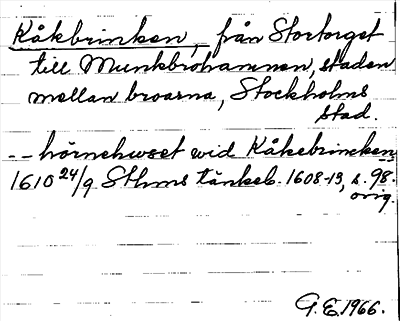 Kåkbrinken, från Stortorget
till Munkbrohamnen, staden
mellan broarna, Stockholms
stad.
-- hörnehuset wid Kåkebrincken --
1610 24/9. Sthms tänkeb. 1608-13, s. 98.
orig.
G.E. 1966.